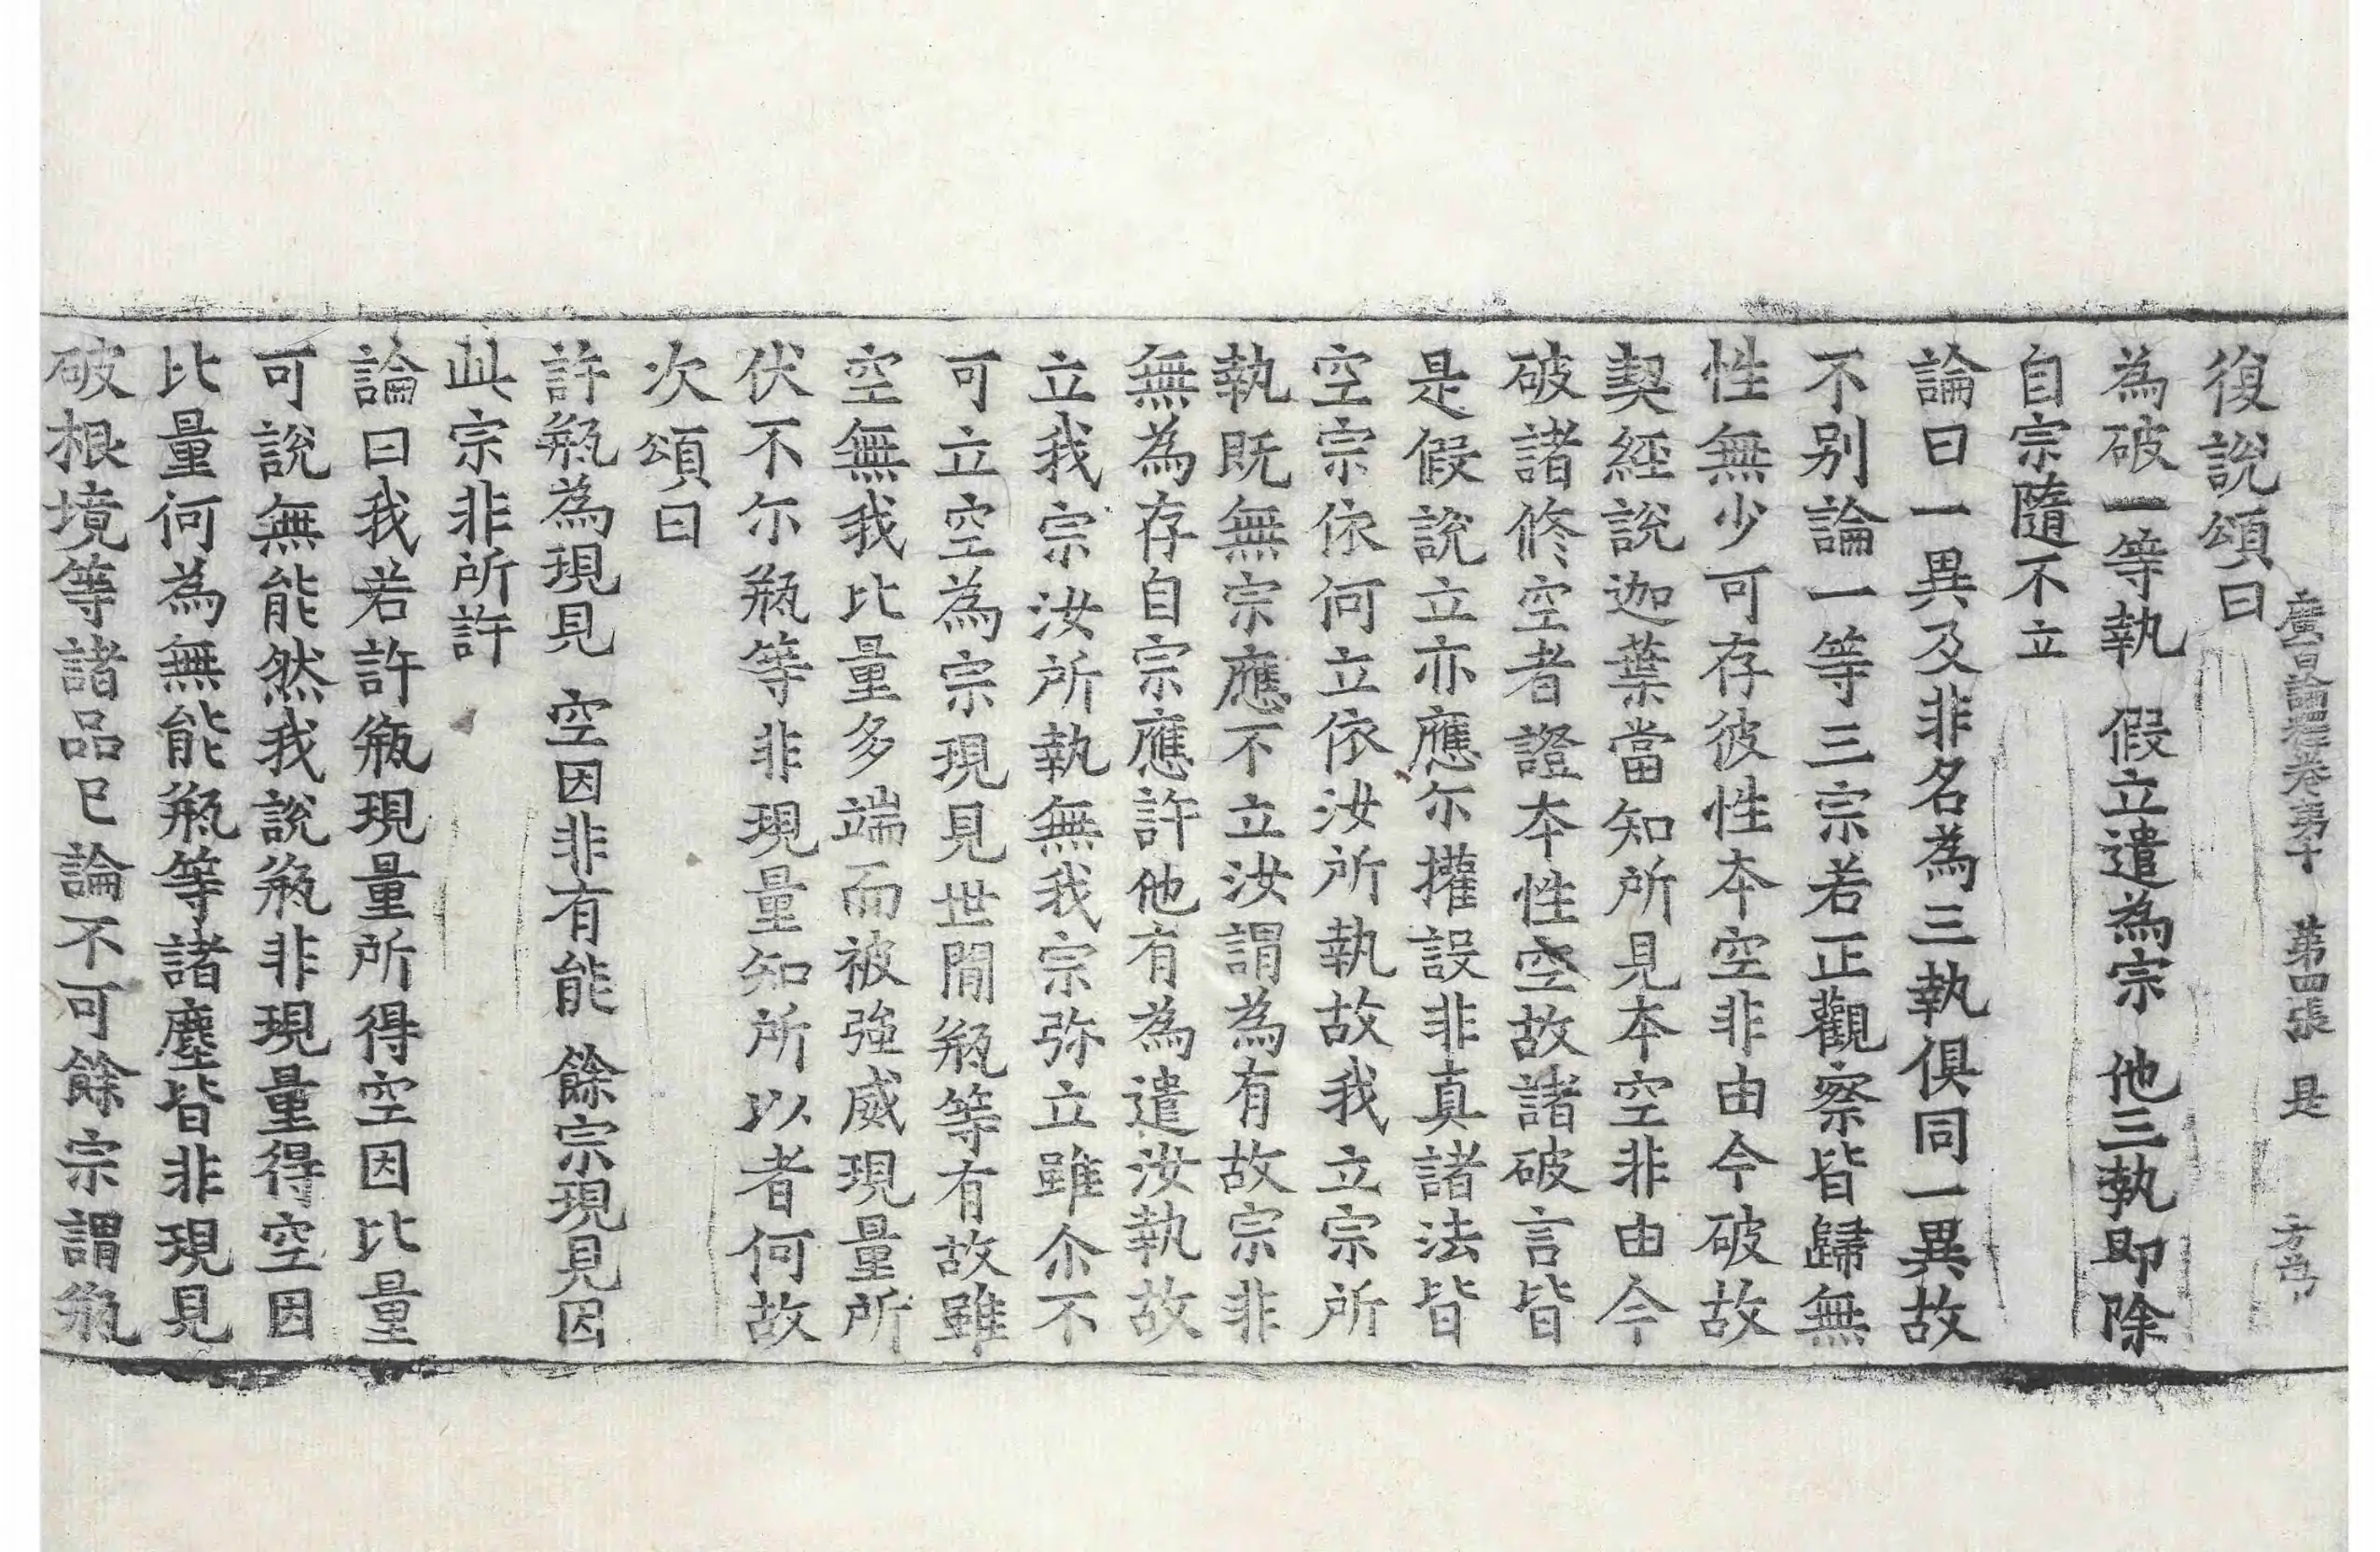 廣百論釋卷第十 第四張 是
復說頌曰
為破一等執 假立遣為宗 他三執即除
自宗隨不立
論曰一異及非名為三執俱同一異故
不别論一等三宗若正觀察皆歸無
性無少可存彼性本空非由今破故
契經說迦葉當知所見本空非由今
破諸修空者證本性空故諸破言皆
是假說立亦應尒權設非真諸法皆
空宗依何立依汝所執故我立宗所
執既無宗應不立汝謂為有故宗非
無為存自宗應許他有為遣汝執故
立我宗汝所執無我宗弥立雖尒不
可立空為宗現見世間瓶等有故雖
空無我比量多端而被強威現量所
伏不尒瓶等非現量知所以者何故
次頌曰
許瓶為現見 空因非有能 餘宗現見因
此宗非所許
論曰我若許瓶現量所得空因比量
可說無能然我說瓶非現量得空因
比量何為無能瓶等諸塵皆非現見
破根境等諸品已論不可餘宗謂瓶